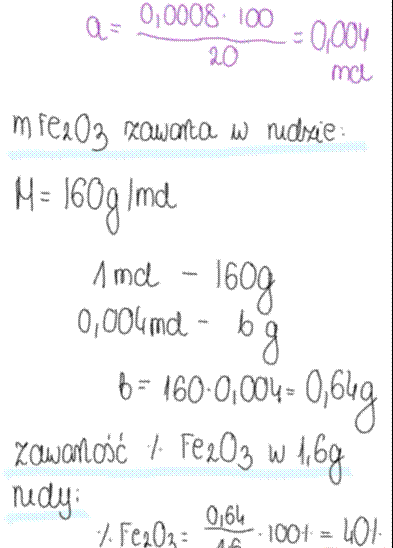 a = 0,0008 · 100 / 20 = 0,004 mol
m Fe2O3 zawarta w rudzie:
M = 160g/mol
1 mol - 160g
0,004 mol - b g
b = 160 · 0,004 = 0,64g
zawartość % Fe2O3 w 1,6g
rudy:
% Fe2O3 = 0,64 / 1,6 · 100% = 40%